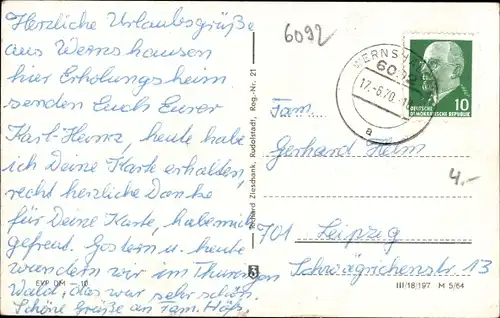 Herzliche Urlaubsgrüße
aus Wernshausen
hier Erholungsheim
senden Euch Eurer
Karl-Heinz, heute habe
ich Deine Karte erhalten,
recht herzliche Danke
für Deine Karte, habe mich
gefreut. Gestern u. heute
wandern wir im Thüringen
Wald, das war sehr schön.
Schöne Grüße an Fam.
EVP DM – 10
Richard Zieschank, Rudolstadt, Reg.-Nr. 21
6092
WERNSH
6092
17.-6.70.-1
a
DEUTSCHE
DEMOKRATISCHE REPUBLIK
10
Fam.
Gerhard Heim
4.-
701 Leipzig
Schwägrichenstr 13
III/18/197 M 5/64